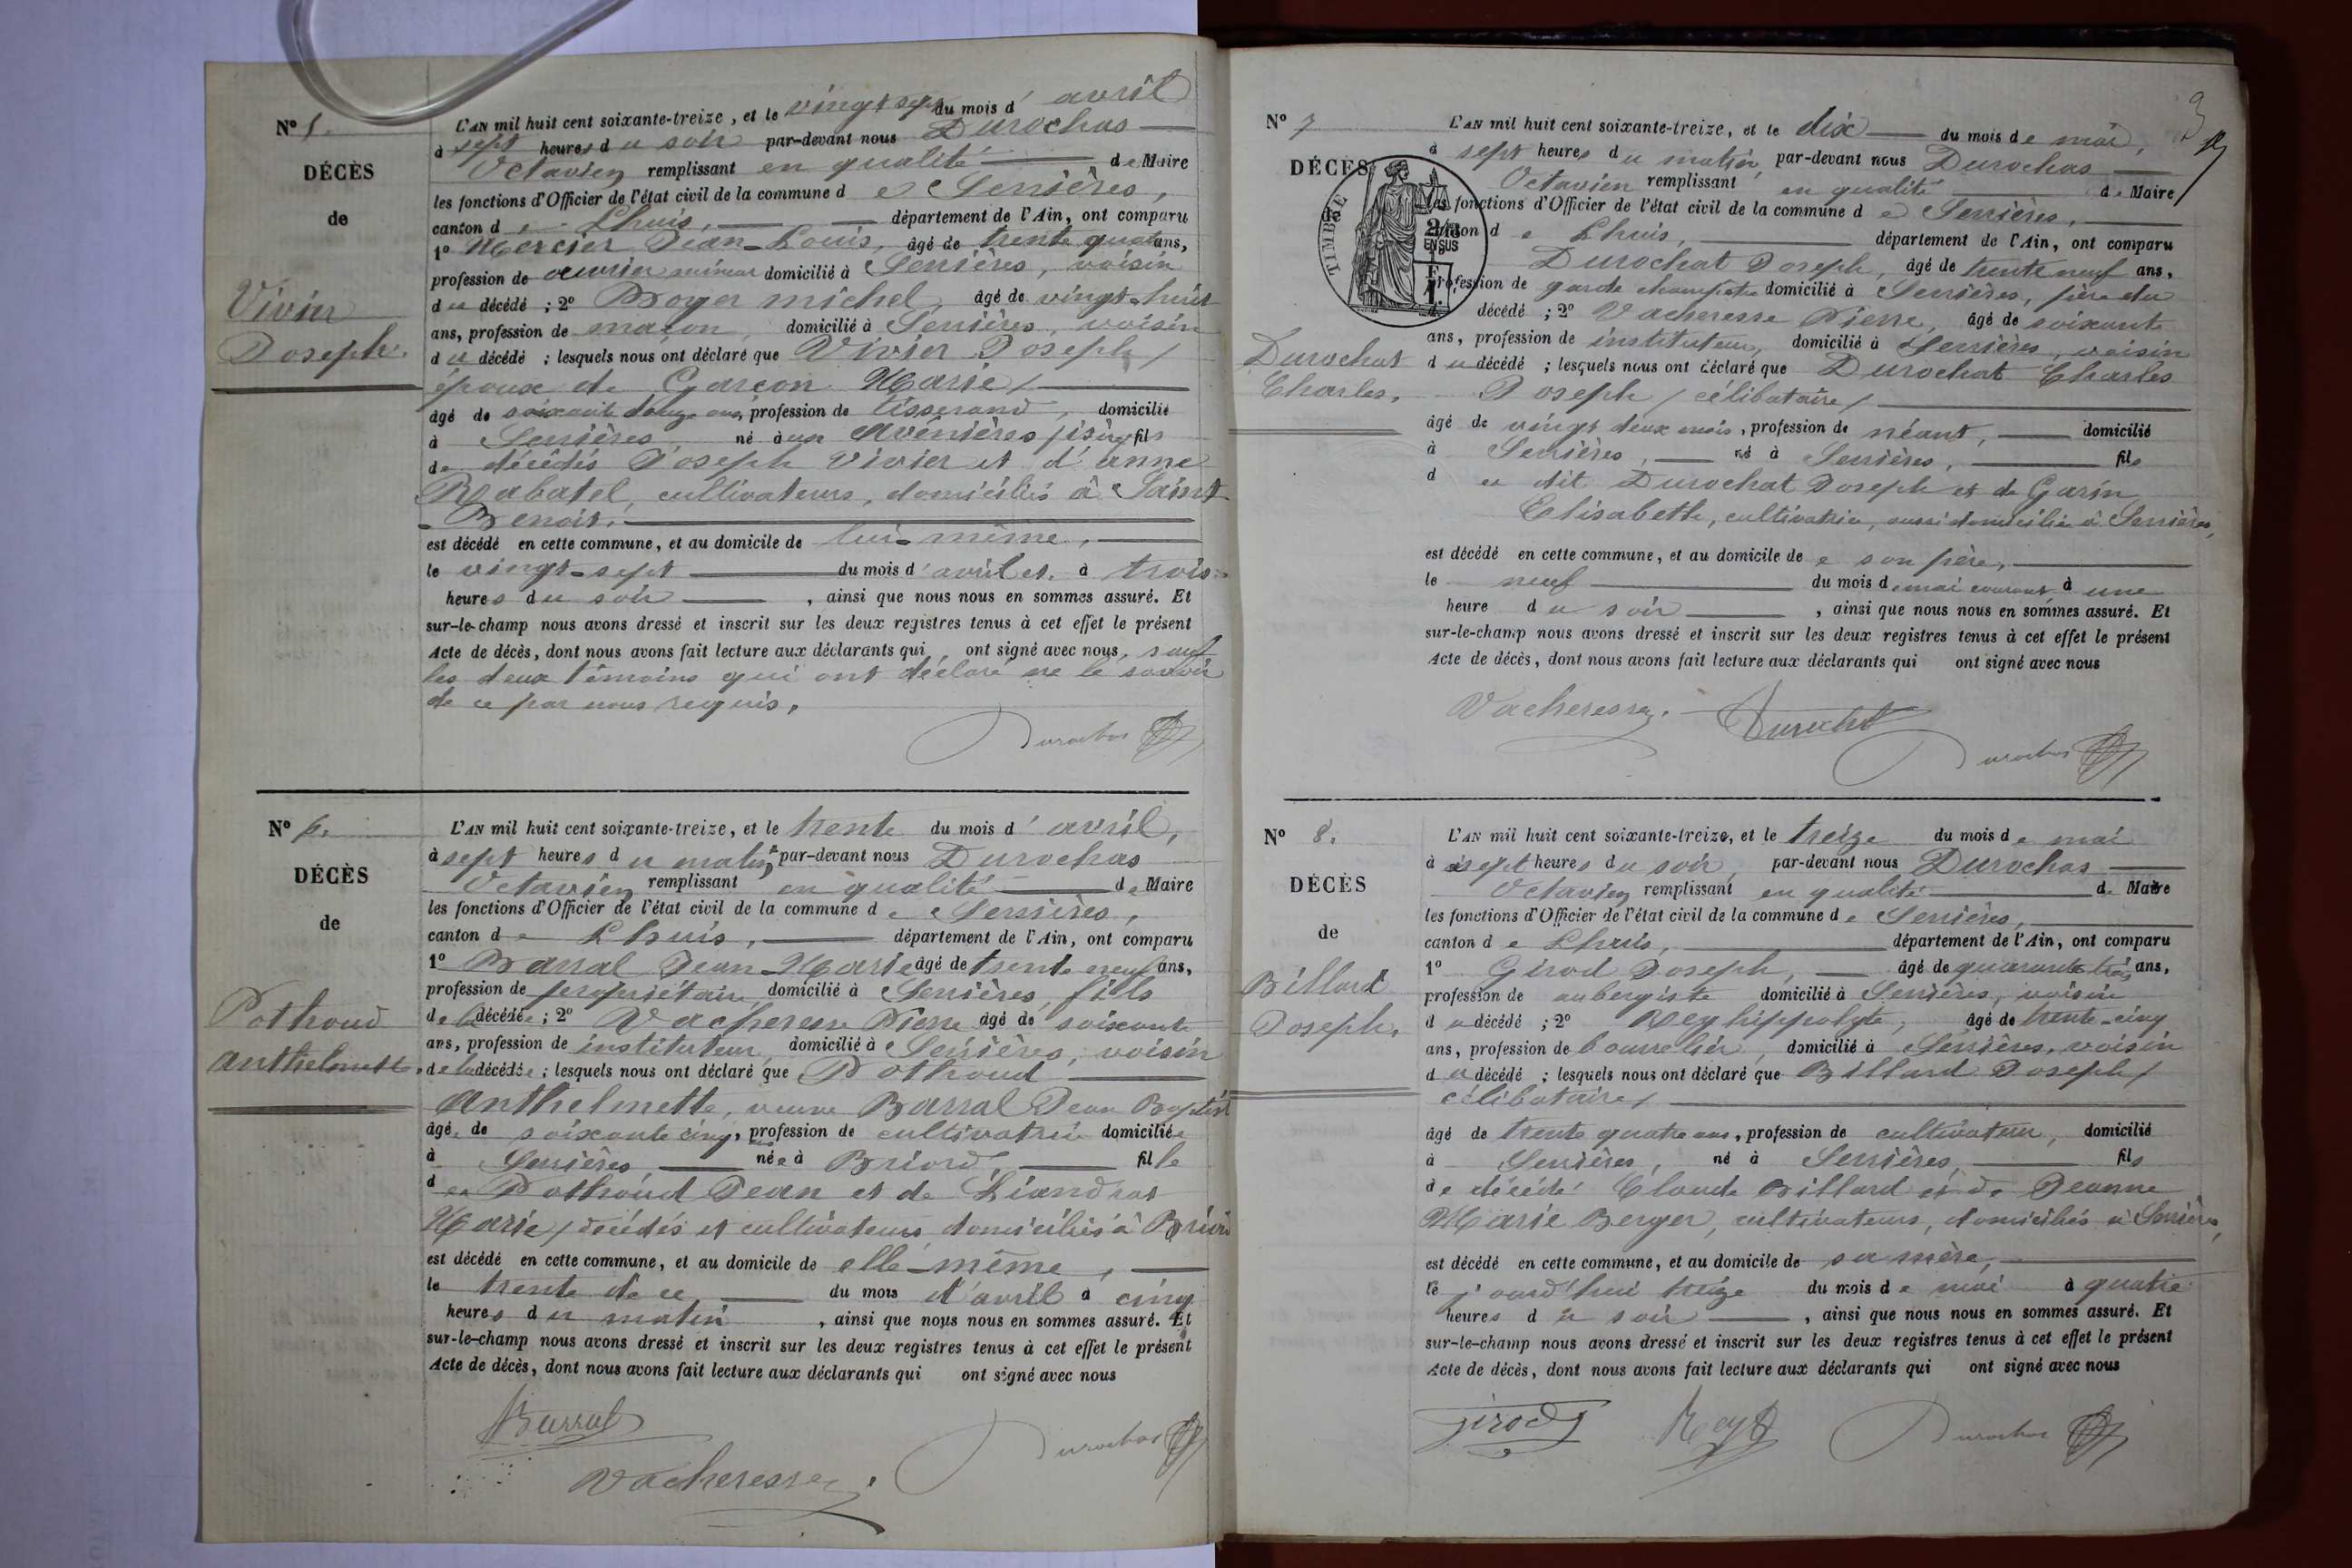 N° 5.
DÉCÈS
de
Vivier
Joseph.
L'AN mil huit cent soixante-treize, et le vingt sept du mois d'avril
à sept heures du soir par-devant nous Durochas
Octavien remplissant en qualité de Maire
les fonctions d'Officier de l'état civil de la commune de Serrières,
canton de Lhuis, département de l'Ain, ont comparu
1° Mercier Jean-Louis, âgé de trente quatre ans,
profession de ouvrier mineur domicilié à Serrières, voisin
du décédé ; 2° Boyer michel, âgé de vingt-huit
ans, profession de maçon, domicilié à Serrières, voisin
du décédé ; lesquels nous ont déclaré que Vivier Joseph /
époux de Garçon Marie /
âgé de soixante douze ans, profession de tisserand, domicilié
à Serrières, né aux Avenières / isère / fils
de décédés Joseph Vivier et d'anne
Rabatel, cultivateurs, domiciliés à Saint
Benoit.
est décédé en cette commune, et au domicile de lui-même,
le vingt-sept du mois d'avril et à trois
heures du soir, ainsi que nous nous en sommes assuré. Et
sur-le-champ nous avons dressé et inscrit sur les deux registres tenus à cet effet le présent
Acte de décès, dont nous avons fait lecture aux déclarants qui ont signé avec nous, sauf
les deux témoins qui ont déclaré ne le savoir
de ce par nous requis.
Durochas
N° 6.
DÉCÈS
de
Pothoud
anthelmette.
L'AN mil huit cent soixante-treize, et le trente du mois d'avril,
à sept heures du matin, par-devant nous Durochas
Octavien remplissant en qualité de Maire
les fonctions d'Officier de l'état civil de la commune de Serrières,
canton de Lhuis, département de l'Ain, ont comparu
1° Barral Jean-Marie âgé de trente neuf ans,
profession de propriétaire domicilié à Serrières, fils
de la décédée ; 2° Vacheresse Pierre âgé de soixante
ans, profession de instituteur, domicilié à Serrières, voisin
de la décédée ; lesquels nous ont déclaré que Pothoud
Anthelmette, veuve Barral Jean Baptist
âgée de soixante cinq ans, profession de cultivatrice domiciliée
à Serrières, née à Briord, fille
de Pothoud Jean et de Liandrat
Marie / décédés et cultivateurs, domiciliés à Briord
est décédé en cette commune, et au domicile de elle-même,
le trente de ce du mois d'avril à cinq
heures du matin, ainsi que nous nous en sommes assuré. Et
sur-le-champ nous avons dressé et inscrit sur les deux registres tenus à cet effet le présent
Acte de décès, dont nous avons fait lecture aux déclarants qui ont signé avec nous
Barral
Durochas
Vacheresse
3
N° 7
DÉCÈS
TIMBRE
2/10
EN SUS
Durochat
Charles.
L'AN mil huit cent soixante-treize, et le dix du mois de mai,
à sept heures du matin, par-devant nous Durochas
Octavien remplissant en qualité de Maire
les fonctions d'Officier de l'état civil de la commune de Serrières,
canton de Lhuis, département de l'Ain, ont comparu
Durochat Joseph, âgé de trente neuf ans,
profession de garde champetre domicilié à Serrières, père du
décédé ; 2° Vacheresse Pierre, âgé de soixante
ans, profession de instituteur, domicilié à Serrières, voisin
du décédé ; lesquels nous ont déclaré que Durochat Charles
Joseph / célibataire /
âgé de vingt deux mois, profession de néant, domicilié
à Serrières, né à Serrières, fils
du dit Durochat Joseph et de Garin
Elisabeth, cultivatrice, aussi domiciliée à Serrières,
est décédé en cette commune, et au domicile de e son père,
le neuf du mois de mai courant à une
heure du soir, ainsi que nous nous en sommes assuré. Et
sur-le-champ nous avons dressé et inscrit sur les deux registres tenus à cet effet le présent
Acte de décès, dont nous avons fait lecture aux déclarants qui ont signé avec nous
Vacheresse. Durochat
Durochas
N° 8.
DÉCÈS
de
Billard
Joseph.
L'AN mil huit cent soixante-treize, et le treize du mois de mai
à sept heures du soir, par-devant nous Durochas
Octavien remplissant en qualité de Maire
les fonctions d'Officier de l'état civil de la commune de Serrières,
canton de Lhuis, département de l'Ain, ont comparu
1° Girod Joseph, âgé de quarante trois ans,
profession de aubergiste domicilié à Serrières, voisin
du décédé ; 2° Rey hippolyte, âgé de trente-cinq
ans, profession de bourrelier, domicilié à Serrières, voisin
du décédé ; lesquels nous ont déclaré que Billard Joseph /
célibataire /
âgé de trente quatre ans, profession de cultivateur, domicilié
à Serrières, né à Serrières, fils
de décédé Claude Billard et de Jeanne
Marie Berger, cultivateurs, domiciliés à Serrières,
est décédé en cette commune, et au domicile de sa mère,
le j'ourd'hui treize du mois de mai à quatre
heures du soir, ainsi que nous nous en sommes assuré. Et
sur-le-champ nous avons dressé et inscrit sur les deux registres tenus à cet effet le présent
Acte de décès, dont nous avons fait lecture aux déclarants qui ont signé avec nous
Girod Rey Durochas